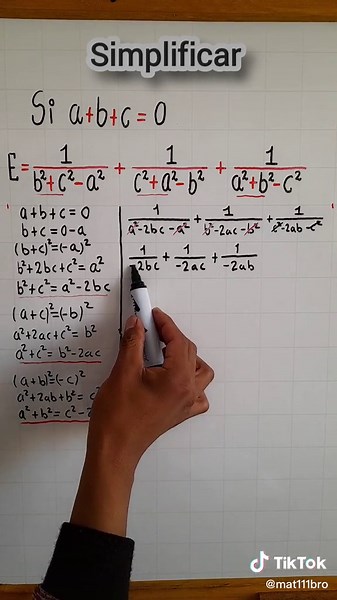 Simplificar
Si a+b+c=0
E = 1/(b²+c²-a²) + 1/(c²+a²-b²) + 1/(a²+b²-c²)
a+b+c=0
b+c=0-a
(b+c)²=(-a)²
b²+2bc+c²=a²
b²+c²=a²-2bc
(a+c)²=(-b)²
a²+2ac+c²=b²
a²+c²=b²-2ac
(a+b)²=(-c)²
a²+2ab+b²=c
a²+b²=c²-2
1/(a²-2bc-a²) + 1/(b²-2ac-b²) + 1/(c²-2ab-c²)
1/(-2bc) + 1/(-2ac) + 1/(-2ab)
TikTok
@mat111bro